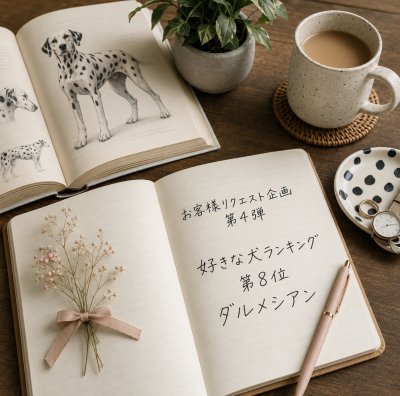 お客様リクエスト企画
第4弾
好きな犬ランキング
第8位
ダルメシアン